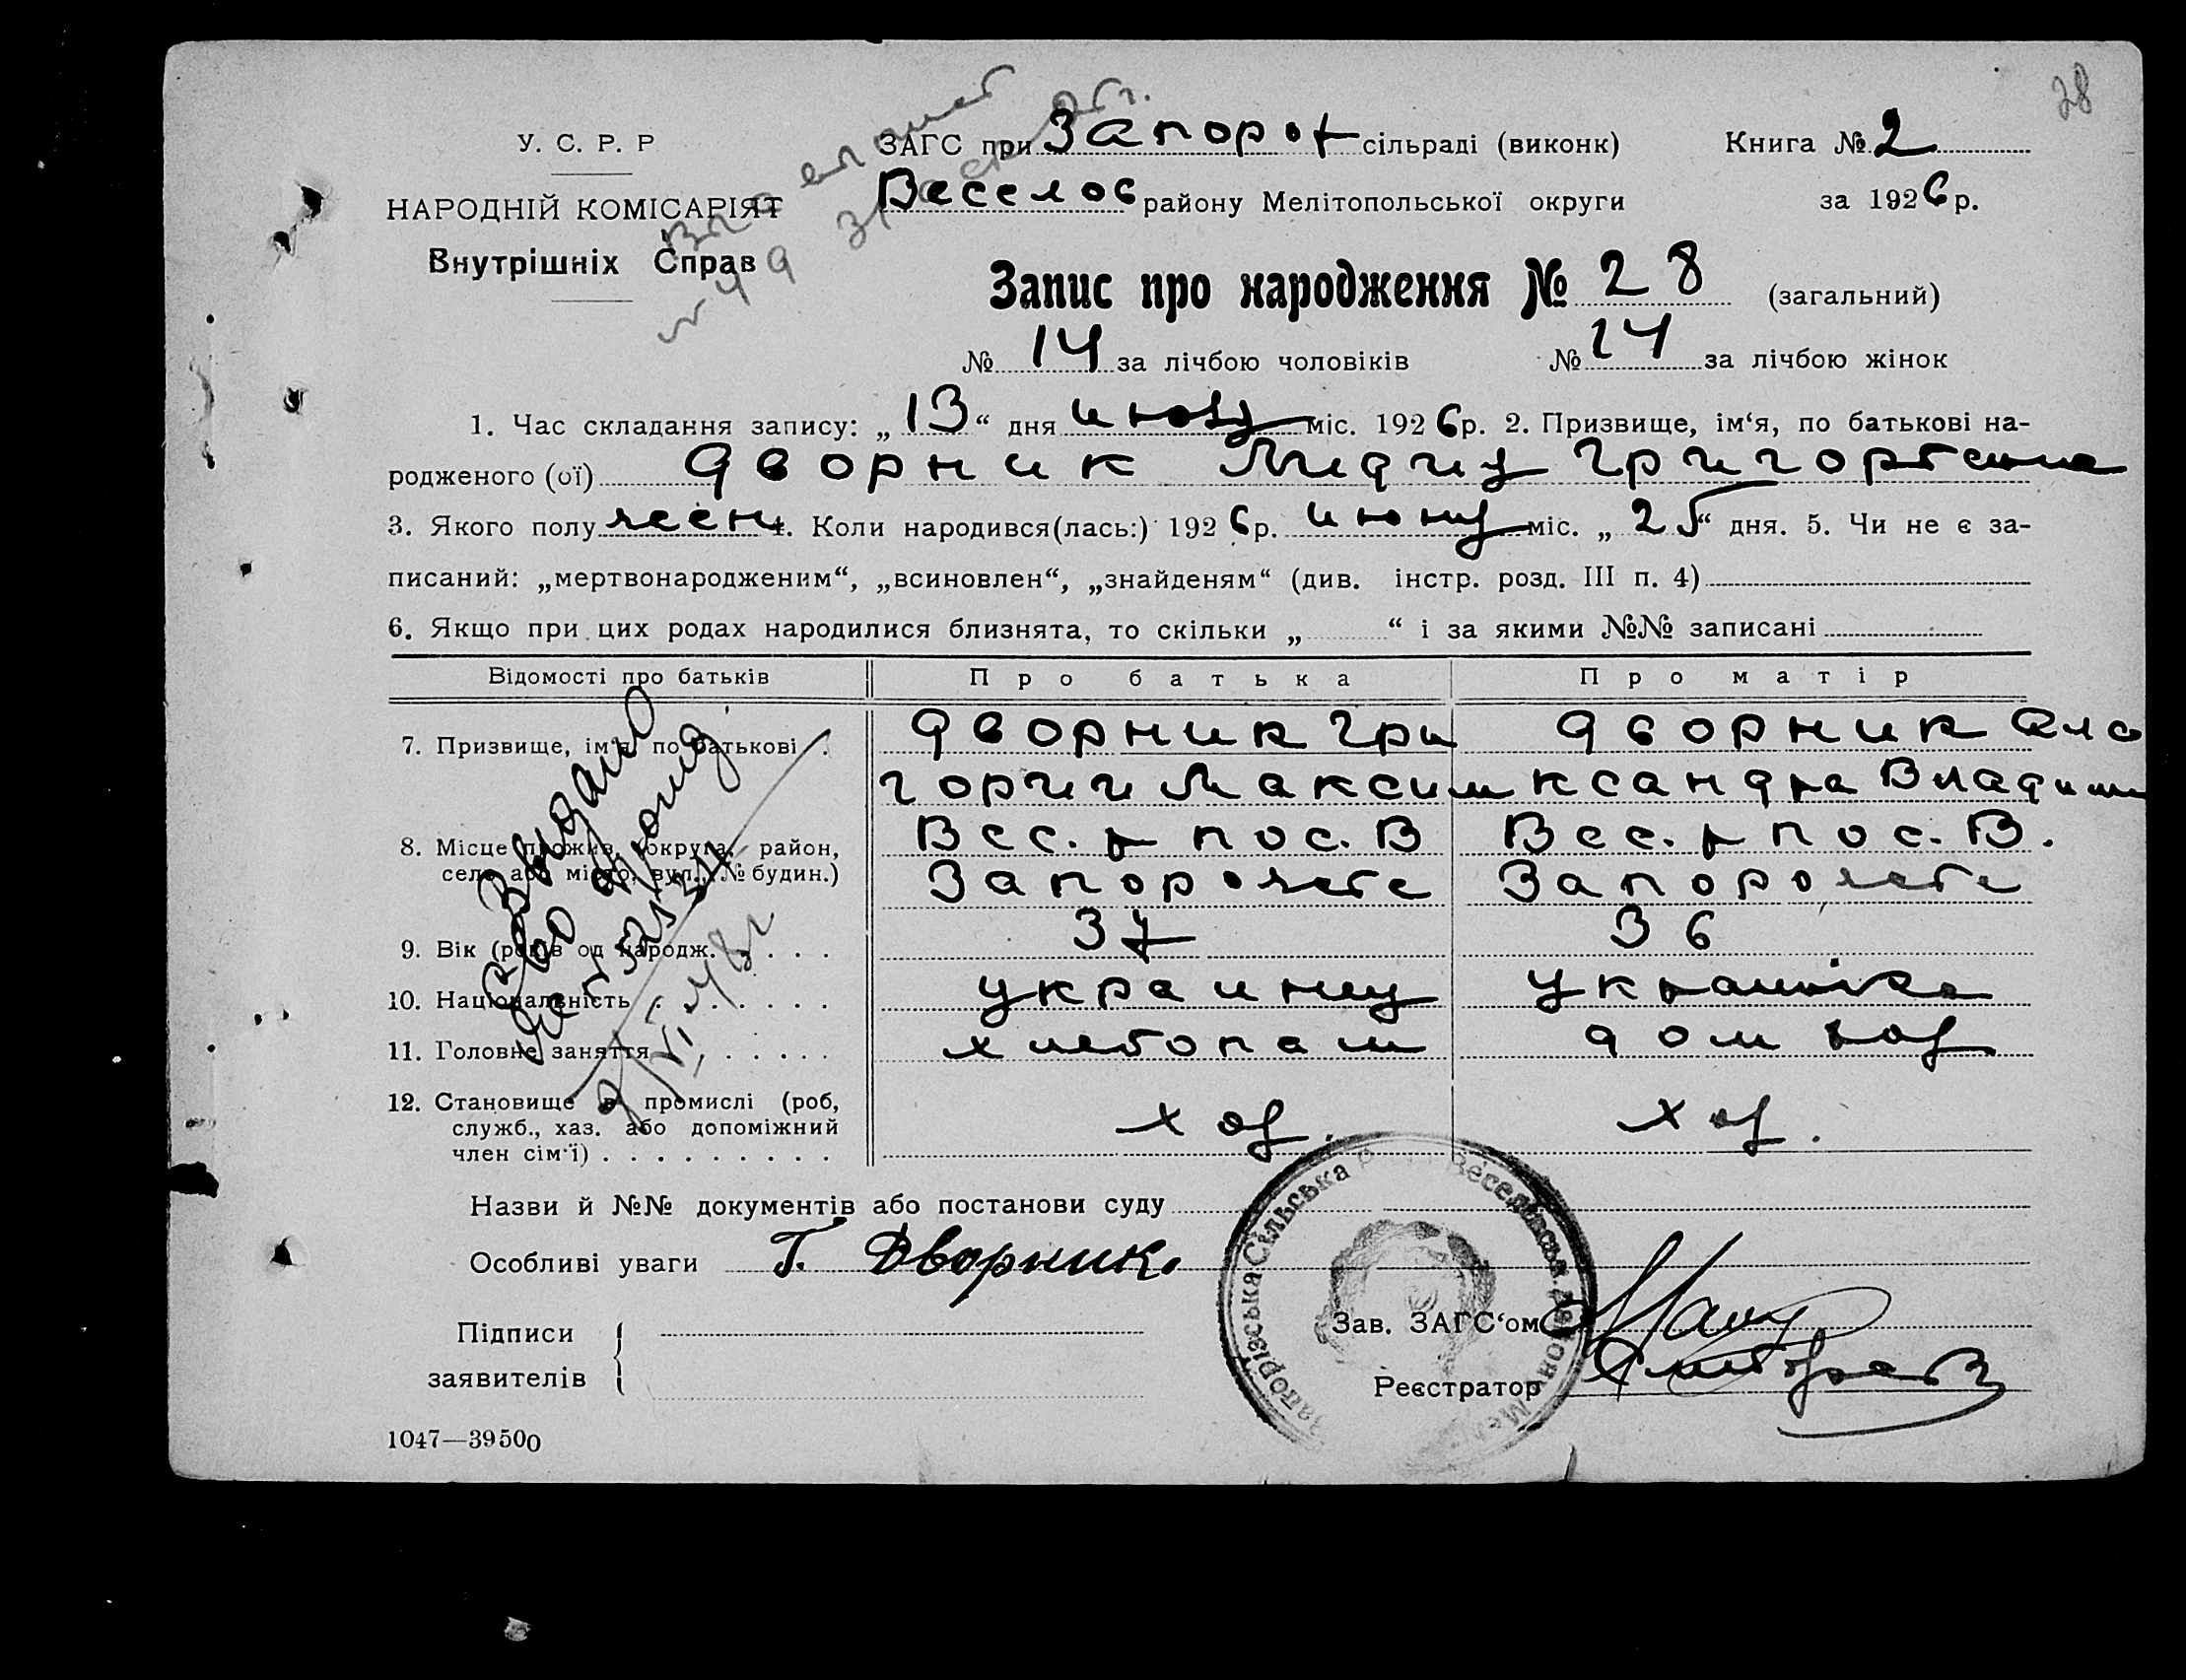 28
У. С. Р. Р
ЗАГС при Запорож сільраді (виконк) Книга № 2
НАРОДНІЙ КОМІСАРІЯТ
Веселов району Мелітопольської округи за 1926 р.
Внутрішніх Справ
Запис про народження № 28 (загальний)
№ 14 за лічбою чоловіків № 14 за лічбою жінок
1. Час складання запису: „13“ дня июля міс. 1926 р. 2. Призвище, ім‘я, по батькові на-
родженого (ої) Дворник Лидия Григорьевна
3. Якого полу женс 4. Коли народився(лась:) 1926 р. июня міс. „25“ дня. 5. Чи не є за-
писаний: „мертвонародженим“, „всиновлен“, „знайденям“ (див. інстр. розд. III п. 4)
6. Якщо при цих родах народилися близнята, то скільки „ “ і за якими №№ записані
Відомості про батьків Про батька Про матір
7. Призвище, ім‘я, по батькові . Дворник Гри Дворник Але
горий Максим ксандра Владим
8. Місце прожив. (округа, район, Вес. р пос. В Вес. р пос. В.
село або місто, вул., № будин.) Запорожье Запорожье
9. Вік (років од народж. . . . . 37 36
10. Національність . . . . . . . украинец украинка
11. Головне заняття . . . . . . хлебопаш дом хоз
12. Становище в промислі (роб, хоз. хоз.
служб., хаз. або допоміжний
член сім‘ї) . . . . . . . . .
Видано
Св-во
Назви й №№ документів або постанови суду
Особливі уваги Г. Дворник
Запорізька Сільська Веселівськ.
Зав. ЗАГС‘ом
Підписи
заявителів
Реєстратор
1047—39500